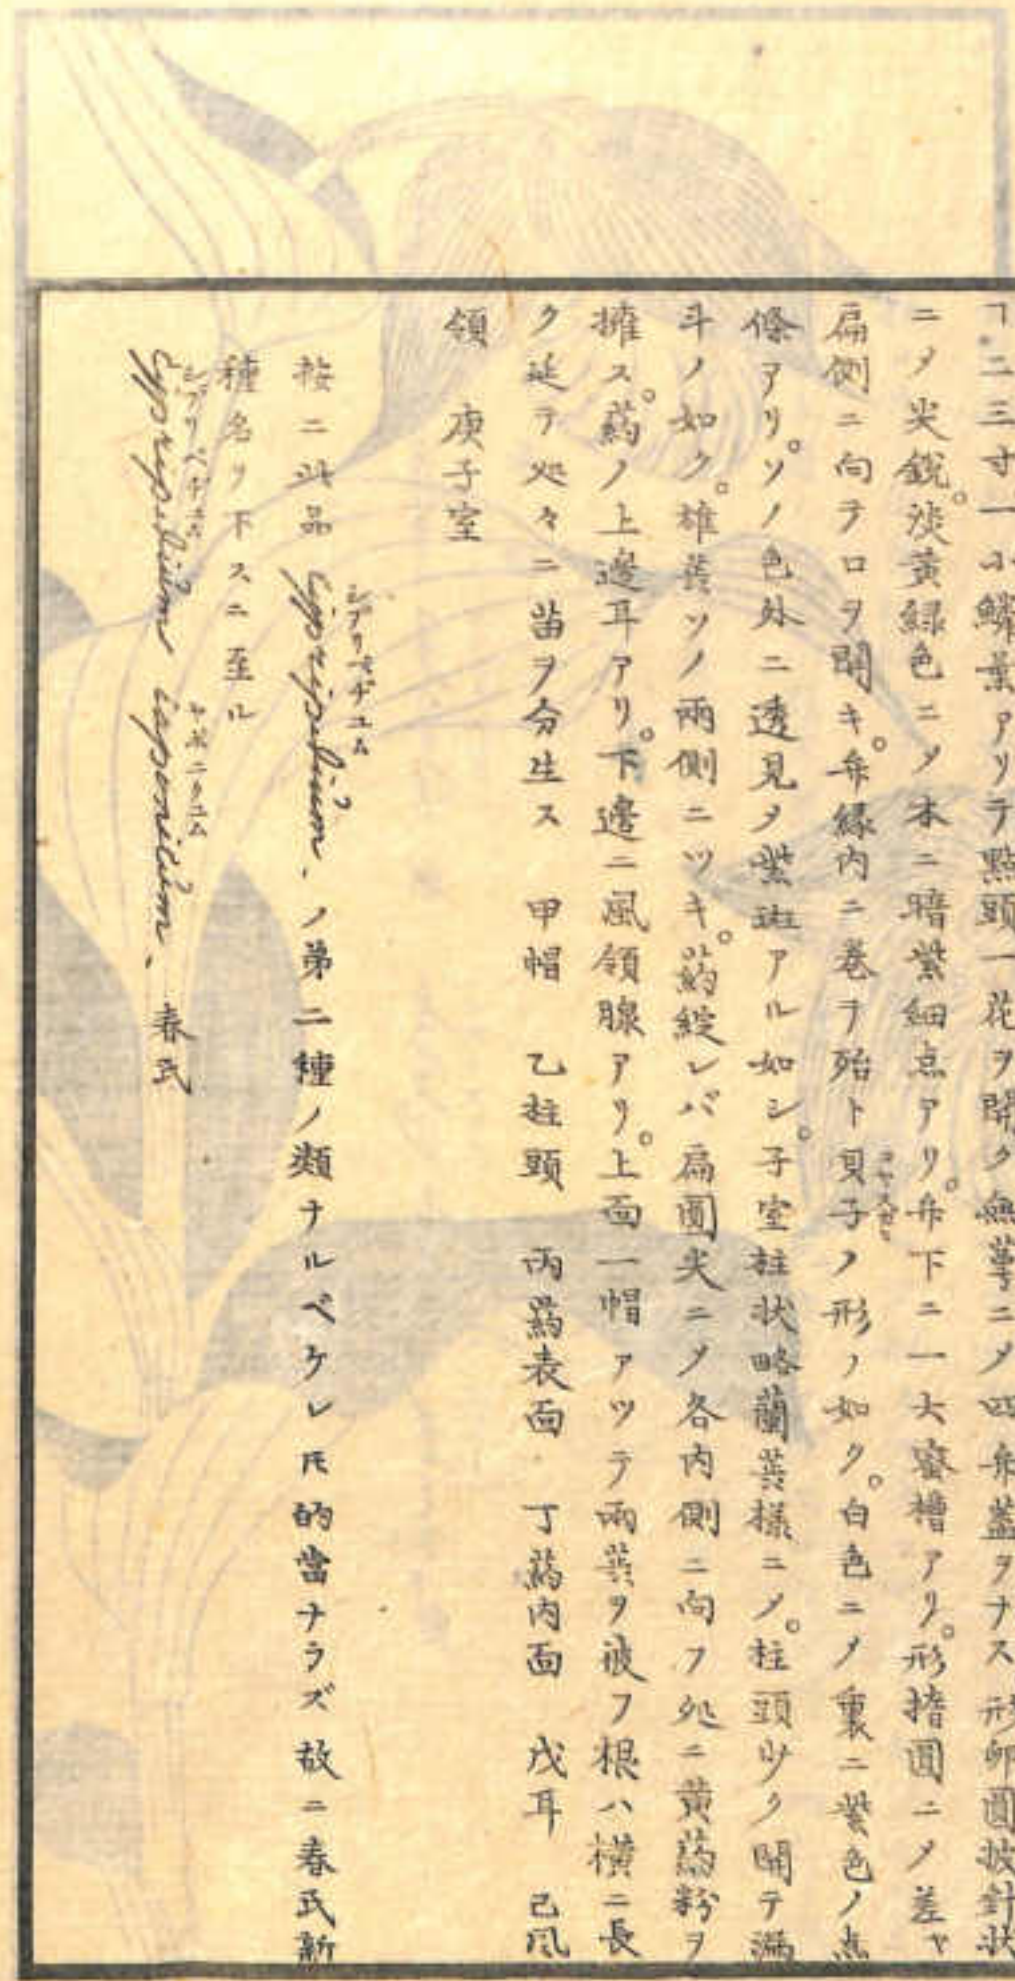 ヿ二三寸一小鱗葉アリテ點頭一花ヲ開ク無萼ニメ四弁蓋ヲナス形卵圓披針状
ニメ尖銳。淡黃緑色ニメ本ニ暗紫細点アリ。弁下ニ一大蜜槽アリ。形撱圓ニメ差ヤ
扁側ニ向テロヲ開キ。弁縁内ニ巻ヲ殆ト貝子ノ形ノ如ク。白色ニメ裏ニ紫色ノ点
條アリ。ソノ色外ニ透見メ紫斑アルノ如シ。子室柱状略蘭蕋様ニメ。柱頭少ク開テ漏
斗ノ如ク。雄蕋ソノ兩側ニツキ。葯綻レバ扁圓尖ニメ各内側ニ向フ処ニ黃葯粉ヲ
擁ス。葯ノ上邊耳アリ。下邊ニ風領腺アリ。上面一帽アツテ兩蕋ヲ被フ根ハ横ニ長
ク延テ処々ニ苗ヲ分生ス 甲帽 乙柱頭 丙葯表面 丁葯内面 戊耳 己風
領 庚子室
按ニ此品 Cypripedium. ノ第二種ノ類ナルベケレ𪜈的當ナラズ故ニ春氏新
シプリペヂユム
種名ヲ下スニ至ル
Cypripedium Iaponicum. 春氏
シプリペヂユム ヤポニクユム